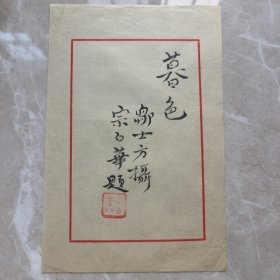 暮色
鄒士方攝
宗白華題